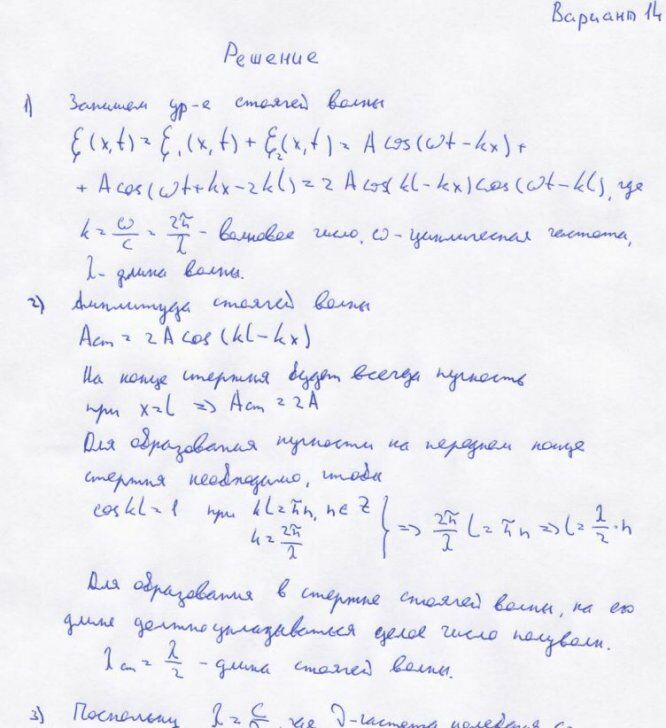 Вариант 14
Решение
1) Запишем ур-е стоячей волны
ξ(x,t) = ξ₁(x,t) + ξ₂(x,t) = A cos(ωt-kx) +
+ A cos(ωt+kx-2kl) = 2A cos(kl-kx) cos(ωt-kl), где
k = ω/c = 2π/λ - волновое число, ω - циклическая частота,
λ - длина волны.
2) Амплитуда стоячей волны
Aст = 2A cos(kl-kx)
На конце стержня будет всегда пучность
при x=l => Aст = 2A
Для образования пучности на переднем конце
стержня необходимо, чтобы
cos kl = 1 при kl = πn, n∈Z
k = 2π/λ } => 2π/λ l = πn => l = λ/2 · n
Для образования в стержне стоячей волны, на его
длине должно укладываться целое число полуволн.
λст = λ/2 - длина стоячей волны.
3) Поскольку λ = c/ν, где ν - частота колебаний